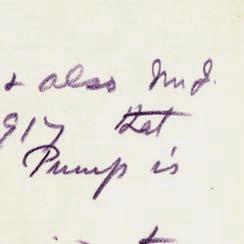 & also Ind.
917 that
Pump is